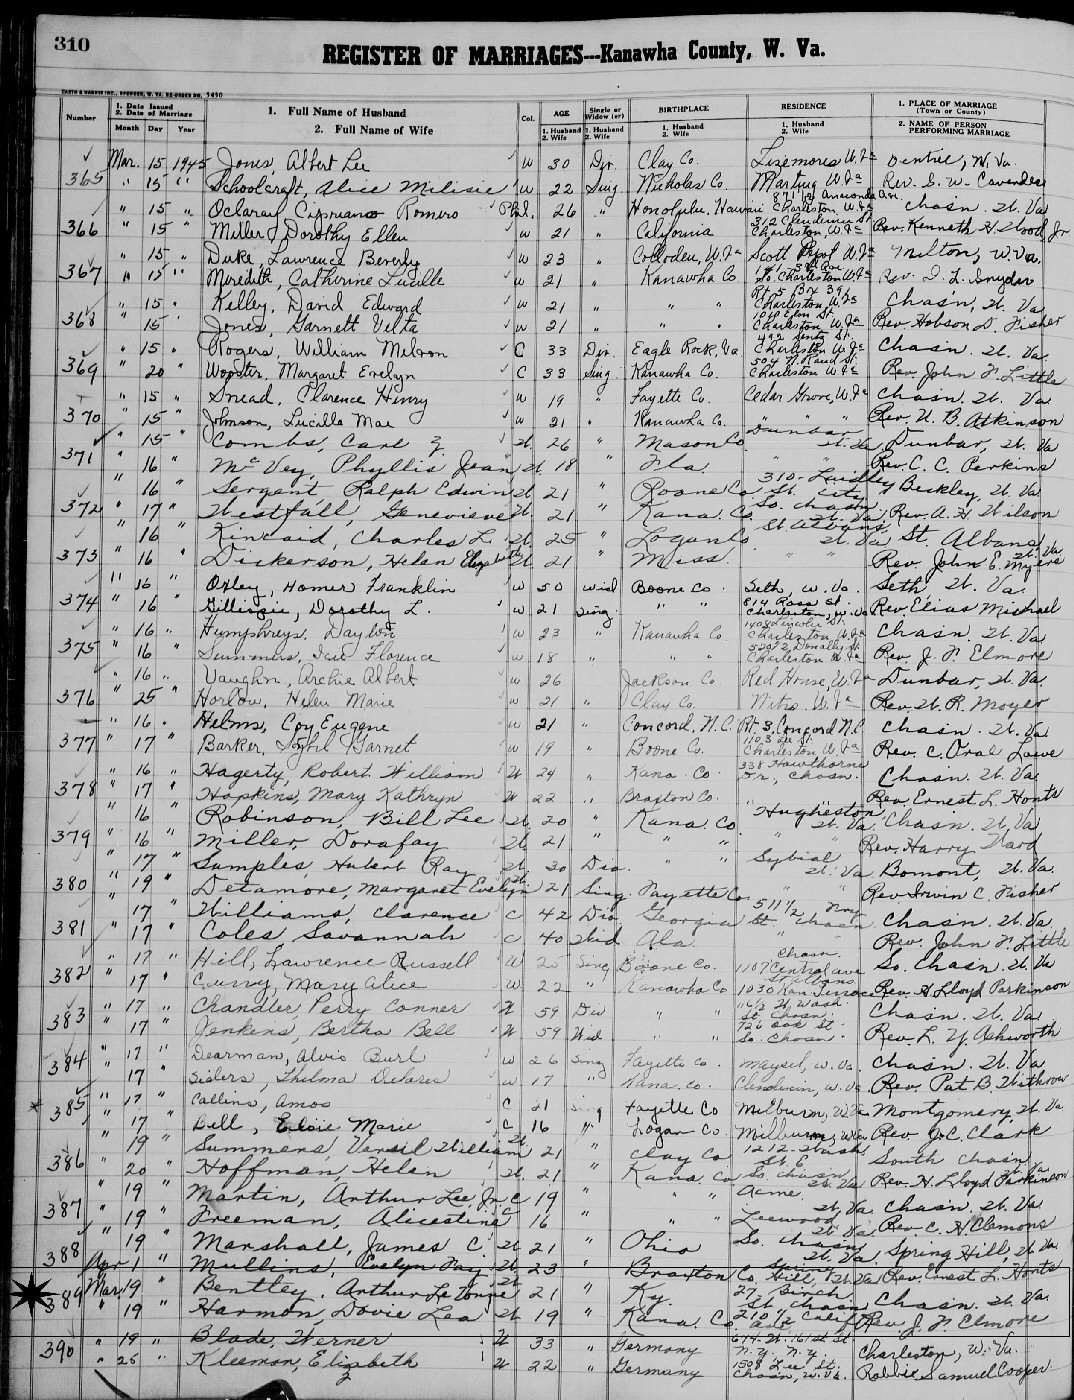 310
REGISTER OF MARRIAGES---Kanawha County, W. Va.
CASTO & HARRIS INC., SPENCER, W. VA. RE-ORDER NO. 5450
Number
1. Date Issued
2. Date of Marriage
Month Day Year
1. Full Name of Husband
2. Full Name of Wife
Col.
AGE
1. Husband
2. Wife
Single or
Widow (er)
1. Husband
2. Wife
BIRTHPLACE
1. Husband
2. Wife
RESIDENCE
1. Husband
2. Wife
1. PLACE OF MARRIAGE
(Town or County)
2. NAME OF PERSON
PERFORMING MARRIAGE
365 Mar. 15 1945 Jones, Albert Lee W 30 Div. Clay Co. Lizemores W.Va W. Va.
" 15 " Schoolcraft, Alice Milisie W 22 Sing. Nicholas Co. Marting W.Va Rev. G. W. Cavender
366 " 15 " Oclaray Cipriano Romero Phil. 26 " Honolulu, Hawaii 871 1/2 Anaconda Av. Charleston W.Va Chasn. W. Va
" 15 " Miller, Dorothy Ellen W 21 " California 312 Clendenin St. Charleston, W.Va Rev. Kenneth H. Wood, Jr
367 " 15 " Duke, Lawrence Beverly W 23 " Culloden, W.Va Scott Depot W.Va Milton, W.Va.
" 15 " Meredith, Catherine Lucille W 21 " Kanawha Co. So. Charleston W.Va Rev. I. L. Snyder
368 " 15 " Kelley, David Edward W 21 " " " Rt. 5 Box 391 Charleston, W.Va Chasn, W. Va
" 15 " Jones, Garnett Velta W 21 " " " 1010 Elm St. Charleston, W.Va Rev. Hobson D. Fisher
369 " 15 " Rogers, William Melvon C 33 Div. Eagle Rock, Va. 492 Sentz St. Charleston W.Va Chasn. W. Va.
" 20 " Wooster, Margaret Evelyn C 33 Sing. Kanawha Co. Charleston W.Va Rev. John F. Little
370 " 15 " Snead, Clarence Henry W 19 " Fayette Co. Cedar Grove, W.Va Chasn. W. Va
" 15 " Johnson, Lucille Mae W 21 " Kanawha Co. " " " Rev. U. B. Atkinson
371 " 15 " Combs, Carl Z. W. 26 " Mason Co Dunbar W. Va Dunbar, W. Va
" 16 " McVey, Phyllis Jean W. 18 " Fla. " " Rev. C. C. Perkins
372 " 16 " Sergent, Ralph Edwin W. 21 " Boone Co 310 Laidley St. City Beckley, W. Va
" 17 " Westfall, Genevieve W. 21 " Kana. Co. So. Chasn W. Va Rev. A. H. Wilson
373 " 16 " Kincaid, Charles L. W. 25 " Logan Co St Albans W. Va St. Albans, W. Va
" 16 " Dickerson, Helen Elizabeth W. 21 " Miss. " " Rev. John E. Myers
374 " 16 " Oxley, Homer Franklin W 50 Wid Boone Co. Seth, W. Va. Seth, W. Va.
" 16 " Gillispie, Dorothy L. W 21 Sing. " " 814 Ross St. Charleston, W.Va Rev. Elias Michael
375 " 16 " Humphreys, Dayton W 23 " Kanawha Co. 1408 Lincoln St. Charleston W.Va Chasn. W. Va
" 16 " Summers, Florence W 18 " " " 520 1/2 Donnally St. Charleston W.Va Rev. J. F. Elmore
376 " 16 " Vaughn, Archie Albert W 26 Jackson Co Red House, W.Va Dunbar, W. Va.
" 25 " Horlow, Helen Marie W 21 " Clay Co. Nitro. W.Va Rev. W. R. Moyer
377 " 16 " Helms, Coy Eugene W 21 " Concord, N.C. Rt. 3, Concord N.C. Chasn. W. Va
" 17 " Barker, Garnet W 19 " Boone Co. 1103 Lee St. Charleston W.Va Rev. C. Oral Lowe
378 " 16 " Hagerty, Robert William W 24 " Kana. Co. 338 Hawthorne Dr., Chasn. Chasn. W. Va
" 17 " Hopkins, Mary Kathryn W 22 " Braxton Co. " " Rev. Ernest L. Honts
379 " 16 Robinson, Bill Lee W. 20 " Kana. Co. Hugheston W. Va. Chasn. W. Va
" 16 " Miller, Dorafay W. 21 " " " " Rev. Harry Ward
380 " 17 " Samples, Hubert Ray W. 30 Div. " " W. Va Bomont, W. Va.
" 19 " Detamore, Margaret Evelyn W. 21 Sing. Fayette Co " " Rev. Irvin C. Fisher
381 " 17 " Williams, Clarence C 42 Div Georgia 511 1/2 St. Chasn Chasn. W. Va
" 17 " Coles, Savannah C 40 Wid Ala. " " Rev. John F. Little
382 " 17 " Hill, Lawrence Russell W 25 Sing Boone Co. 1107 Central ave Chasn. So. Chasn. W. Va
" 17 " Curry, Mary Alice W 22 " Kanawha Co 1030 Kan. Terrace St. Albans Rev. H. Lloyd Parkinson
383 " 17 " Chandler, Perry Conner W 59 Div " " 116 1/2 W. Wash. St. Chasn. Chasn. W. Va
" 17 " Jenkins, Bertha Bell W 59 Wid. " " 726 Oak St. So. Chasn. Rev. L. Y. Ashworth
384 " 17 " Dearman, Alvis Burl W 26 Sing Fayette Co. Maysel, W. Va. Chasn. W. Va
" 17 " Sisters, Thelma Delores W 17 " Kana. Co. Clendenin, W. Va. Rev. Pat B. Withrow
385 " 17 " Collins, Amos C 21 Sing Fayette Co Milburn, W.Va Montgomery, W. Va
" 17 " Bell, Elsie Marie C 16 " Logan Co. Milburn, W.Va Rev. J. C. Clark
386 " 19 " Summers, Versil William W. 21 " Clay Co 1212 Wash. St. E. South Chasn W. Va
" 20 " Hoffman, Helen W. 21 " Kana. Co So. Chasn W. Va Rev. H. Lloyd Parkinson
387 " 19 " Martin, Arthur Lee, Jr. C 19 " " " Acme W. Va Chasn. W. Va
" 19 " Freeman, Alicestine C 16 " " " Leewood W. Va Rev. C. H. Clemons
388 " 19 Marshall, James C. W. 21 " Ohio So. Chasn W. Va Spring Hill, W. Va.
Apr 1 " Mullins, Evelyn Fay W. 23 " Braxton Co. Spring Hill, W.Va Rev. Ernest L. Honts
389 Mar. 19 " Bentley, Arthur La Tonzie W. 21 " Ky. 27 Birch St. Chasn Chasn. W. Va.
" 19 " Harmon, Dovie Lea W. 19 " Kana. Co. 210 1/2 Calif Rev. J. F. Elmore
390 " 19 " Blade, Werner W 33 " Germany 674 W. 161st St N.Y. N.Y. Charleston, W. Va.
" 25 " Kleeman, Elizabeth W 22 " Germany 1508 Lee St. Chasn, W. Va. Rabbi Samuel Cooper